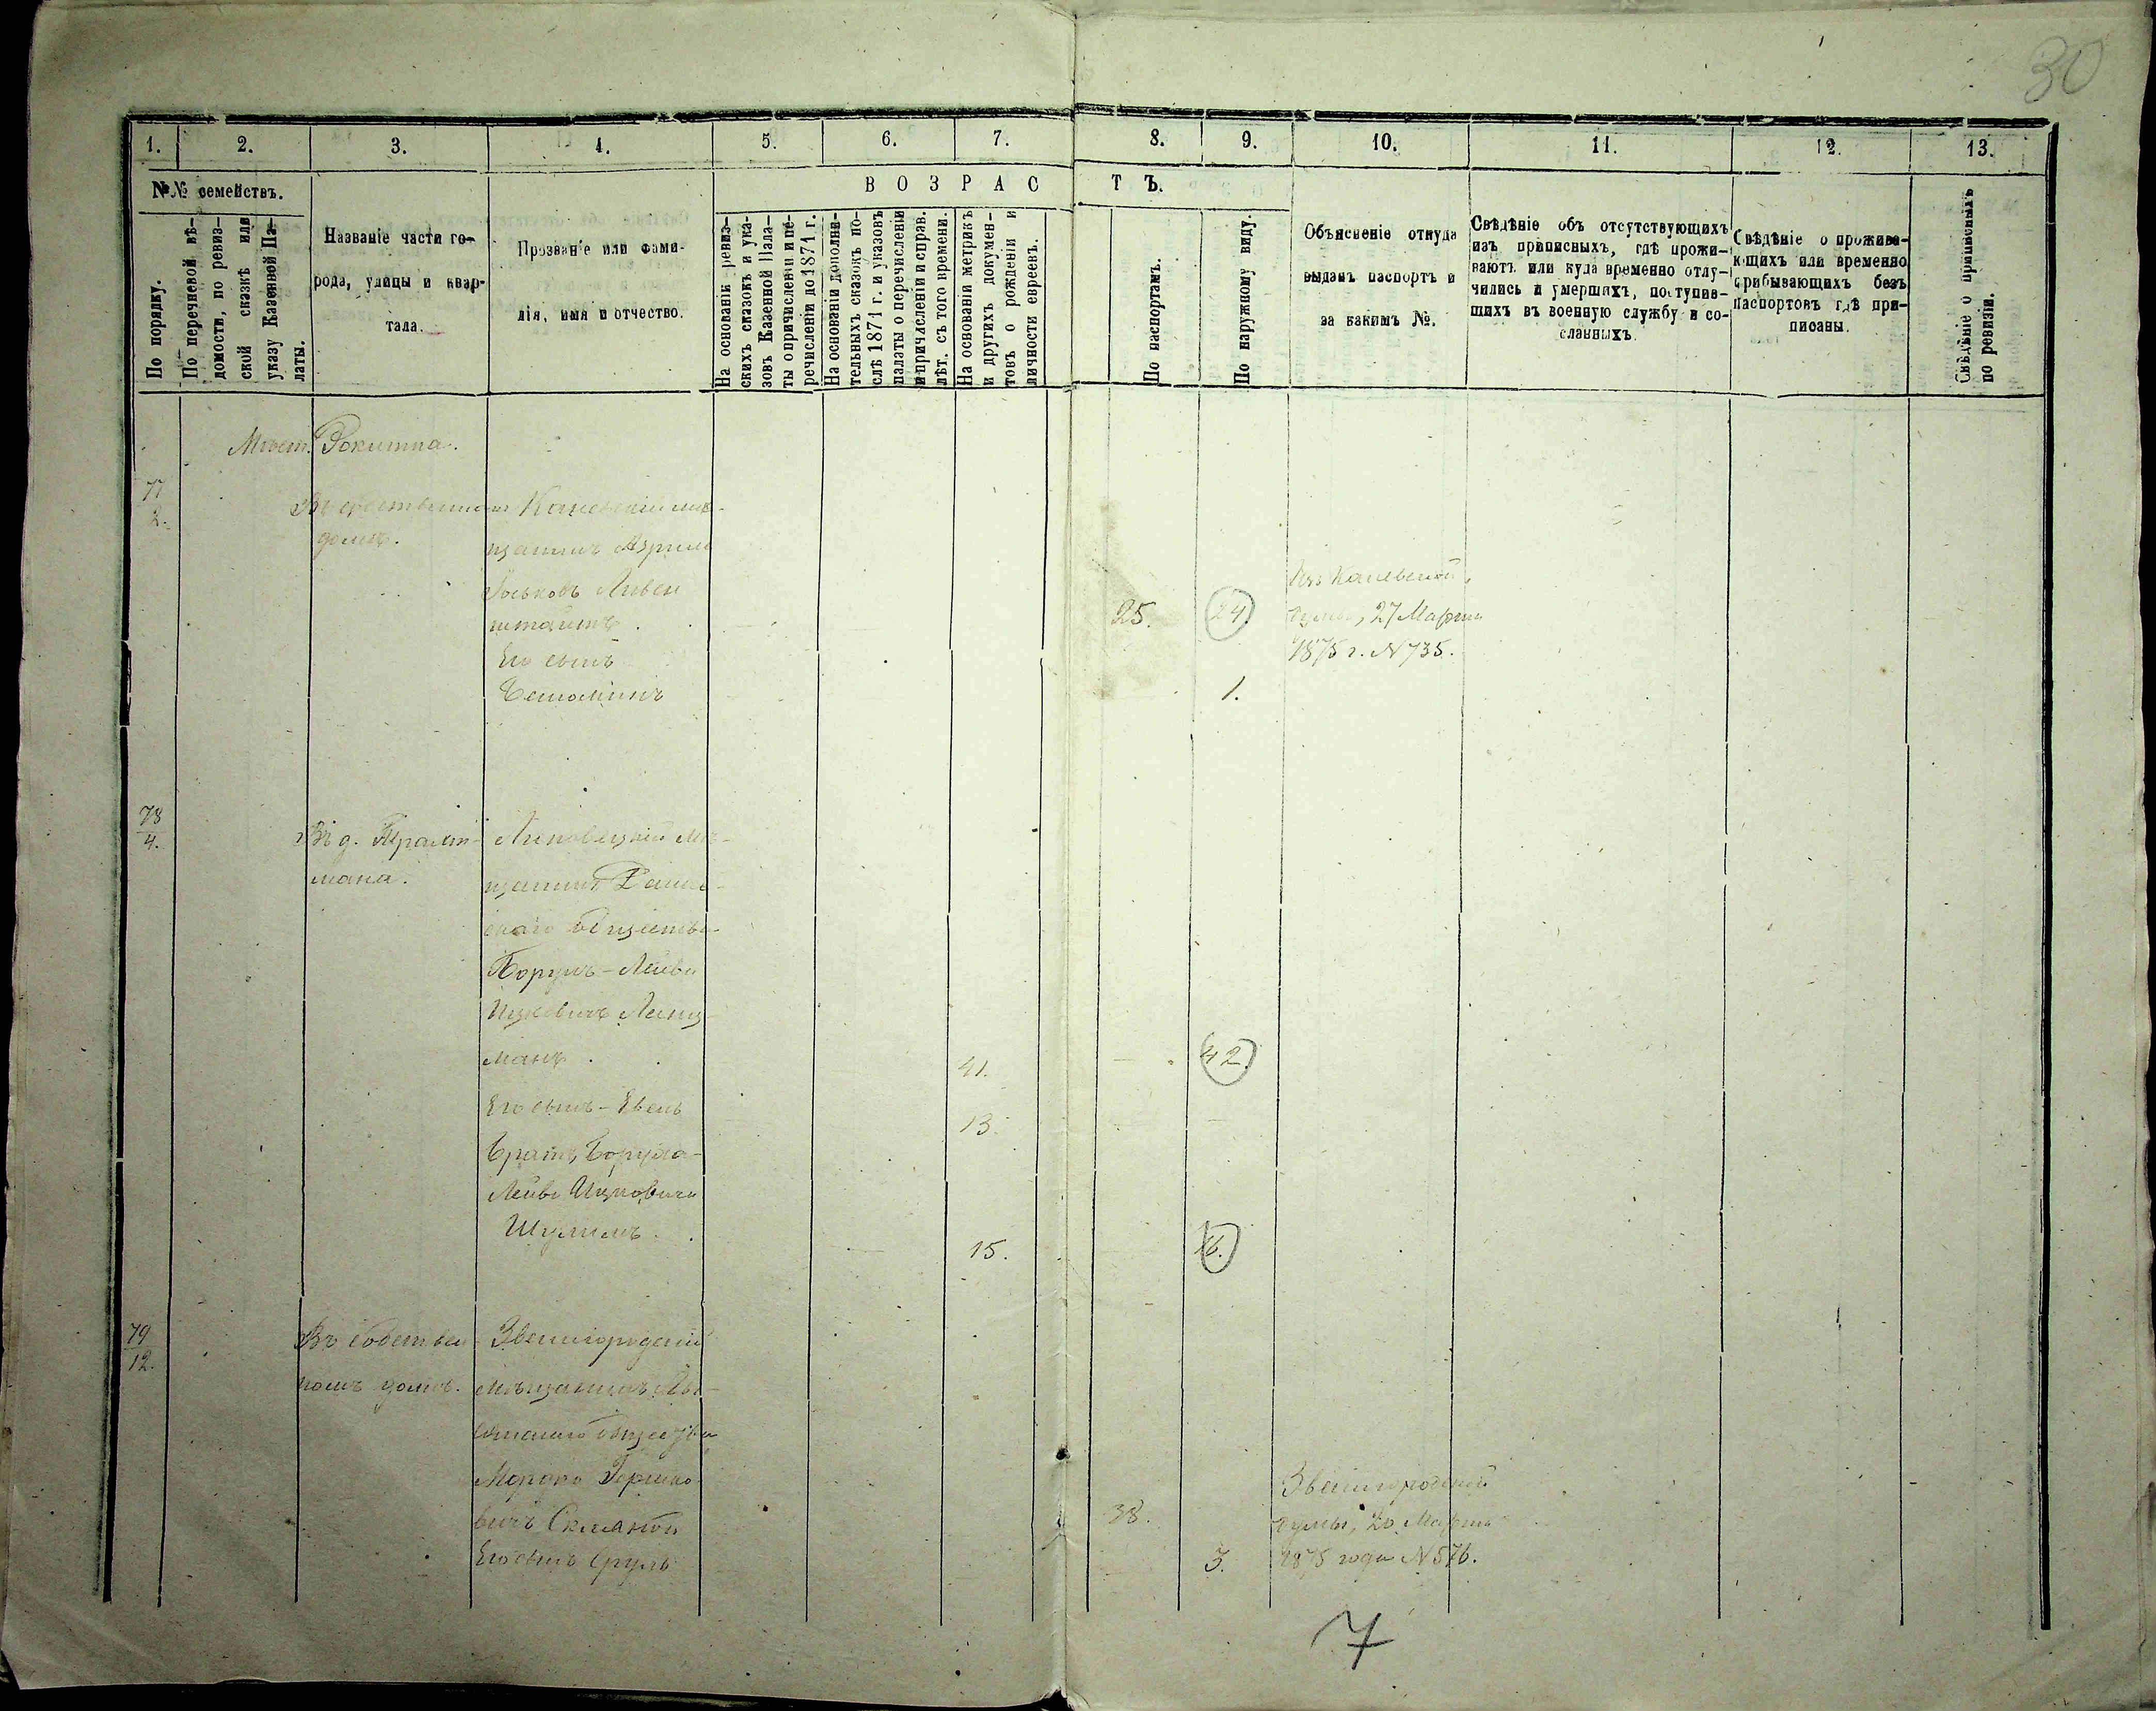 30
1. 2. 3. 4. 5. 6. 7. 8. 9. 10. 11. 12. 13.
№№ семействъ.
В О З Р А С Т Ъ.
По порядку.
По перечневой вѣ-
домости, по ревиз-
ской сказкѣ или
указу Казенной Па-
латы.
Названіе части го-
рода, улицы и квар-
тала.
Прозваніе или фами-
лія, имя и отчество.
На основаніи ревиз-
скихъ сказокъ и ука-
зовъ Казенной Пала-
ты о причисленіи и пе-
речисленіи до 1871 г.
На основаніи дополни-
тельныхъ сказокъ по-
слѣ 1871 г. и указовъ
палаты о перечисленіи
и причисленіи и справ.
лѣт. съ того времени.
На основаніи метрикъ
и другихъ докумен-
товъ о рожденіи и
личности евреевъ.
По паспортамъ.
По наружному виду.
Объясненіе откуда
выданъ паспортъ и
за какимъ №.
Свѣдѣніе объ отсутствующихъ
изъ приписныхъ, гдѣ прожи-
ваютъ или куда временно отлу-
чились и умершихъ, поступив-
шихъ въ военную службу и со-
сланныхъ.
Свѣдѣніе о прожива-
ющихъ или временно
прибывающихъ безъ
паспортовъ гдѣ при-
писаны.
Свѣдѣніе о приписныхъ
по ревизіи.
Мѣст. Рокитна.
77
2.
домѣ.
Каневскій мѣ-
щанинъ Азриль
Іоськовъ Ливен
штейнъ. 25. 24.
Изъ Каневской
думы, 27 Марта
1875 г. N 735.
Его сынъ
Беньоминъ 1.
78
4.
Въ д. Тралт-
мана.
Липовецкій мѣ-
щанинъ
скаго общества
Борухъ-Лейба
Ицковичъ Ланц-
манъ. 41. 42.
Его сынъ-Евель 13.
Братъ Боруха-
Лейбы Ицковича
Шулимъ. 15. 16.
79
12.
Въ собствен-
номъ домѣ.
Звенигородскій
мѣщанинъ
общества
Мордко Гершко-
вичъ 38.
Звенигородской
думы, 20 Марта
1875 года N 576.
Его сынъ Сруль 3.
7